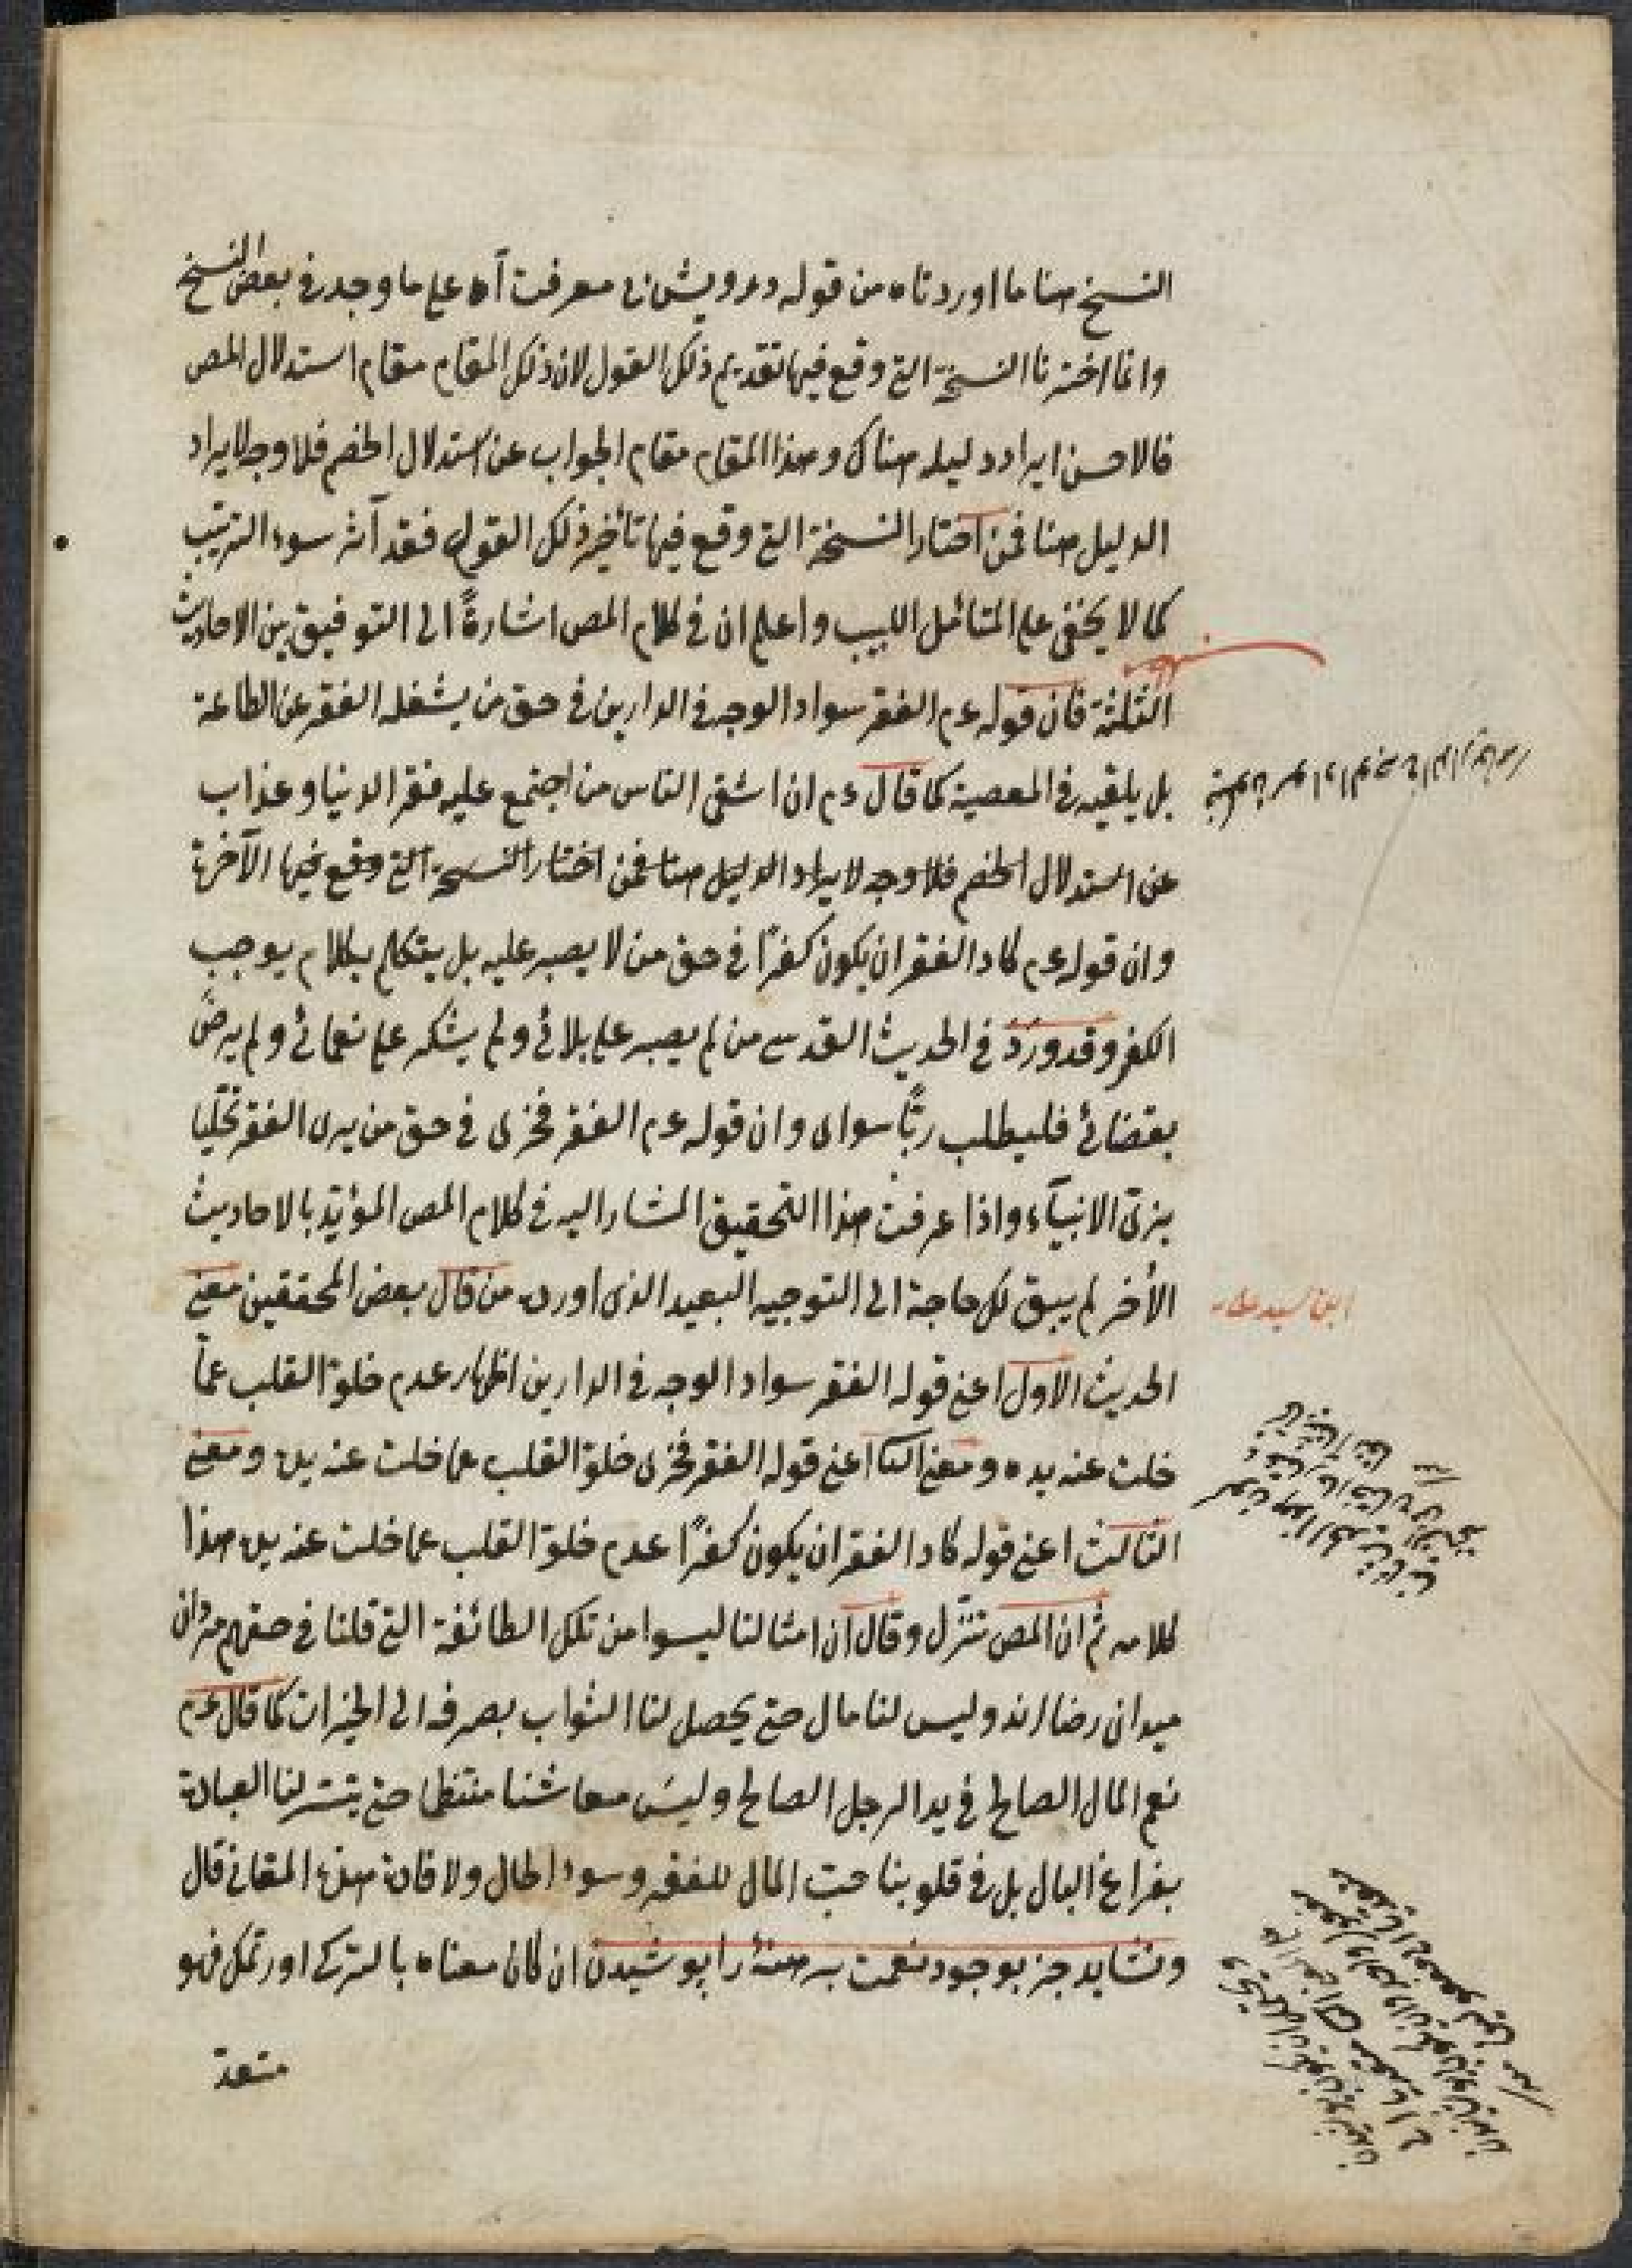 النسخ هنا ما اوردناه من قوله درويش بى معرفت آه على ما وجد فى بعض النسخ
وانما اخترنا النسخة التى وقع فيها تقديم ذلك القول لان ذلك المقام مقام استدلال المص
فالاحسن ايراد دليله هناك وهذا المقام مقام الجواب عن استدلال الخصم فلا وجه لايراد
الدليل هنا فمن اختار النسخة التى وقع فيها تأخير ذلك القول فقد آثر سوء الترتيب
كما لا يخفى على المتأمل اللبيب واعلم ان فى كلام المص اشارةً الى التوفيق بين الاحاديث
الثلثة فان قوله عم الفقر سواد الوجه فى الدارين فى حق من يشغله الفقر عن الطاعة
بل يلقيه فى المعصية كما قال عم ان اشقى الناس من اجتمع عليه فقر الدنيا وعذاب
عن استدلال الخصم فلا وجه لايراد الدليل هنا فمن اختار النسخة التى وقع فيها الآخرة
وان قوله عم كاد الفقر ان يكون كفرًا فى حق من لا يصبر عليه بل يتكلم بكلام يوجب
الكفر وقد ورد فى الحديث القدسى من لم يصبر على بلائى ولم يشكر على نعمائى ولم يرض
بقضائى فليطلب ربًّا سواى وان قوله عم الفقر فخرى فى حق من يرى الفقر تحلّيا
بزىّ الانبيآء واذا عرفت هذا التحقيق المشار اليه فى كلام المص المؤيّد بالاحاديث
الأخر لم يبق لك حاجة الى التوجيه البعيد الذى اورده من قال بعض المحققين معنى
الحديث الاول اعنى قوله الفقر سواد الوجه فى الدارين اظهار عدم خلوّ القلب عمّا
خلت عنه يده ومعنى الثا اعنى قوله الفقر فخرى خلوّ القلب عما خلت عنه يده ومعنى
الثالث اعنى قوله كاد الفقر ان يكون كفرًا عدم خلوّ القلب عما خلت عنه يده هذا
كلامه ثم ان المص تنزّل وقال ان امثالنا ليسوا من تلك الطائفة التى قلنا فى حقهم مردان
ميدان رضا اند وليس لنا مال حتى يحصل لنا الثواب بصرفه الى الخيرات كما قال عم
نعم المال الصالح فى يد الرجل الصالح وليس معاشنا منتظما حتى يتيسر لنا العبادة
بفراغ البال بل فى قلوبنا حبّ المال للفقر وسوء الحال ولافادة هذه المعانى قال
ونشايد جز بوجود نعمت برهنه را پوشيدن ان كان معناه بالتركى اورتمك فهو
ابن سيد على
متعد